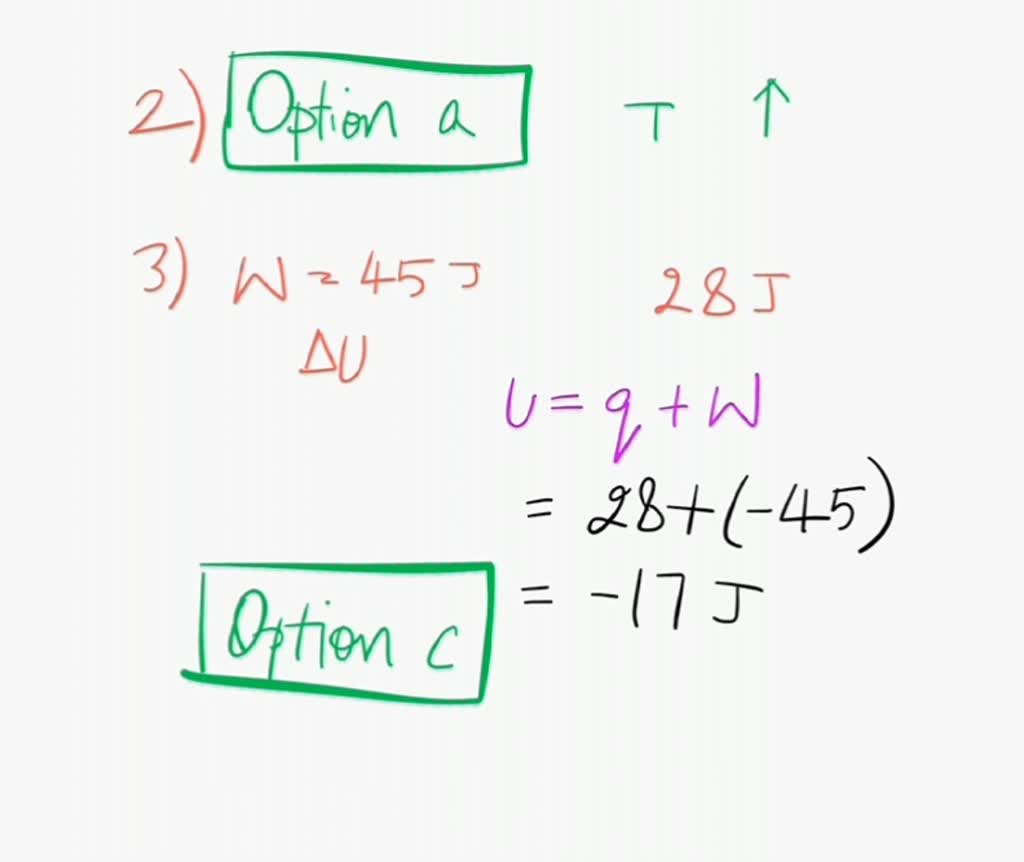 2) Option a T ↑
3) W = 45 J 28 J
ΔU
U = q + W
= 28+(-45)
= -17 J
Option c